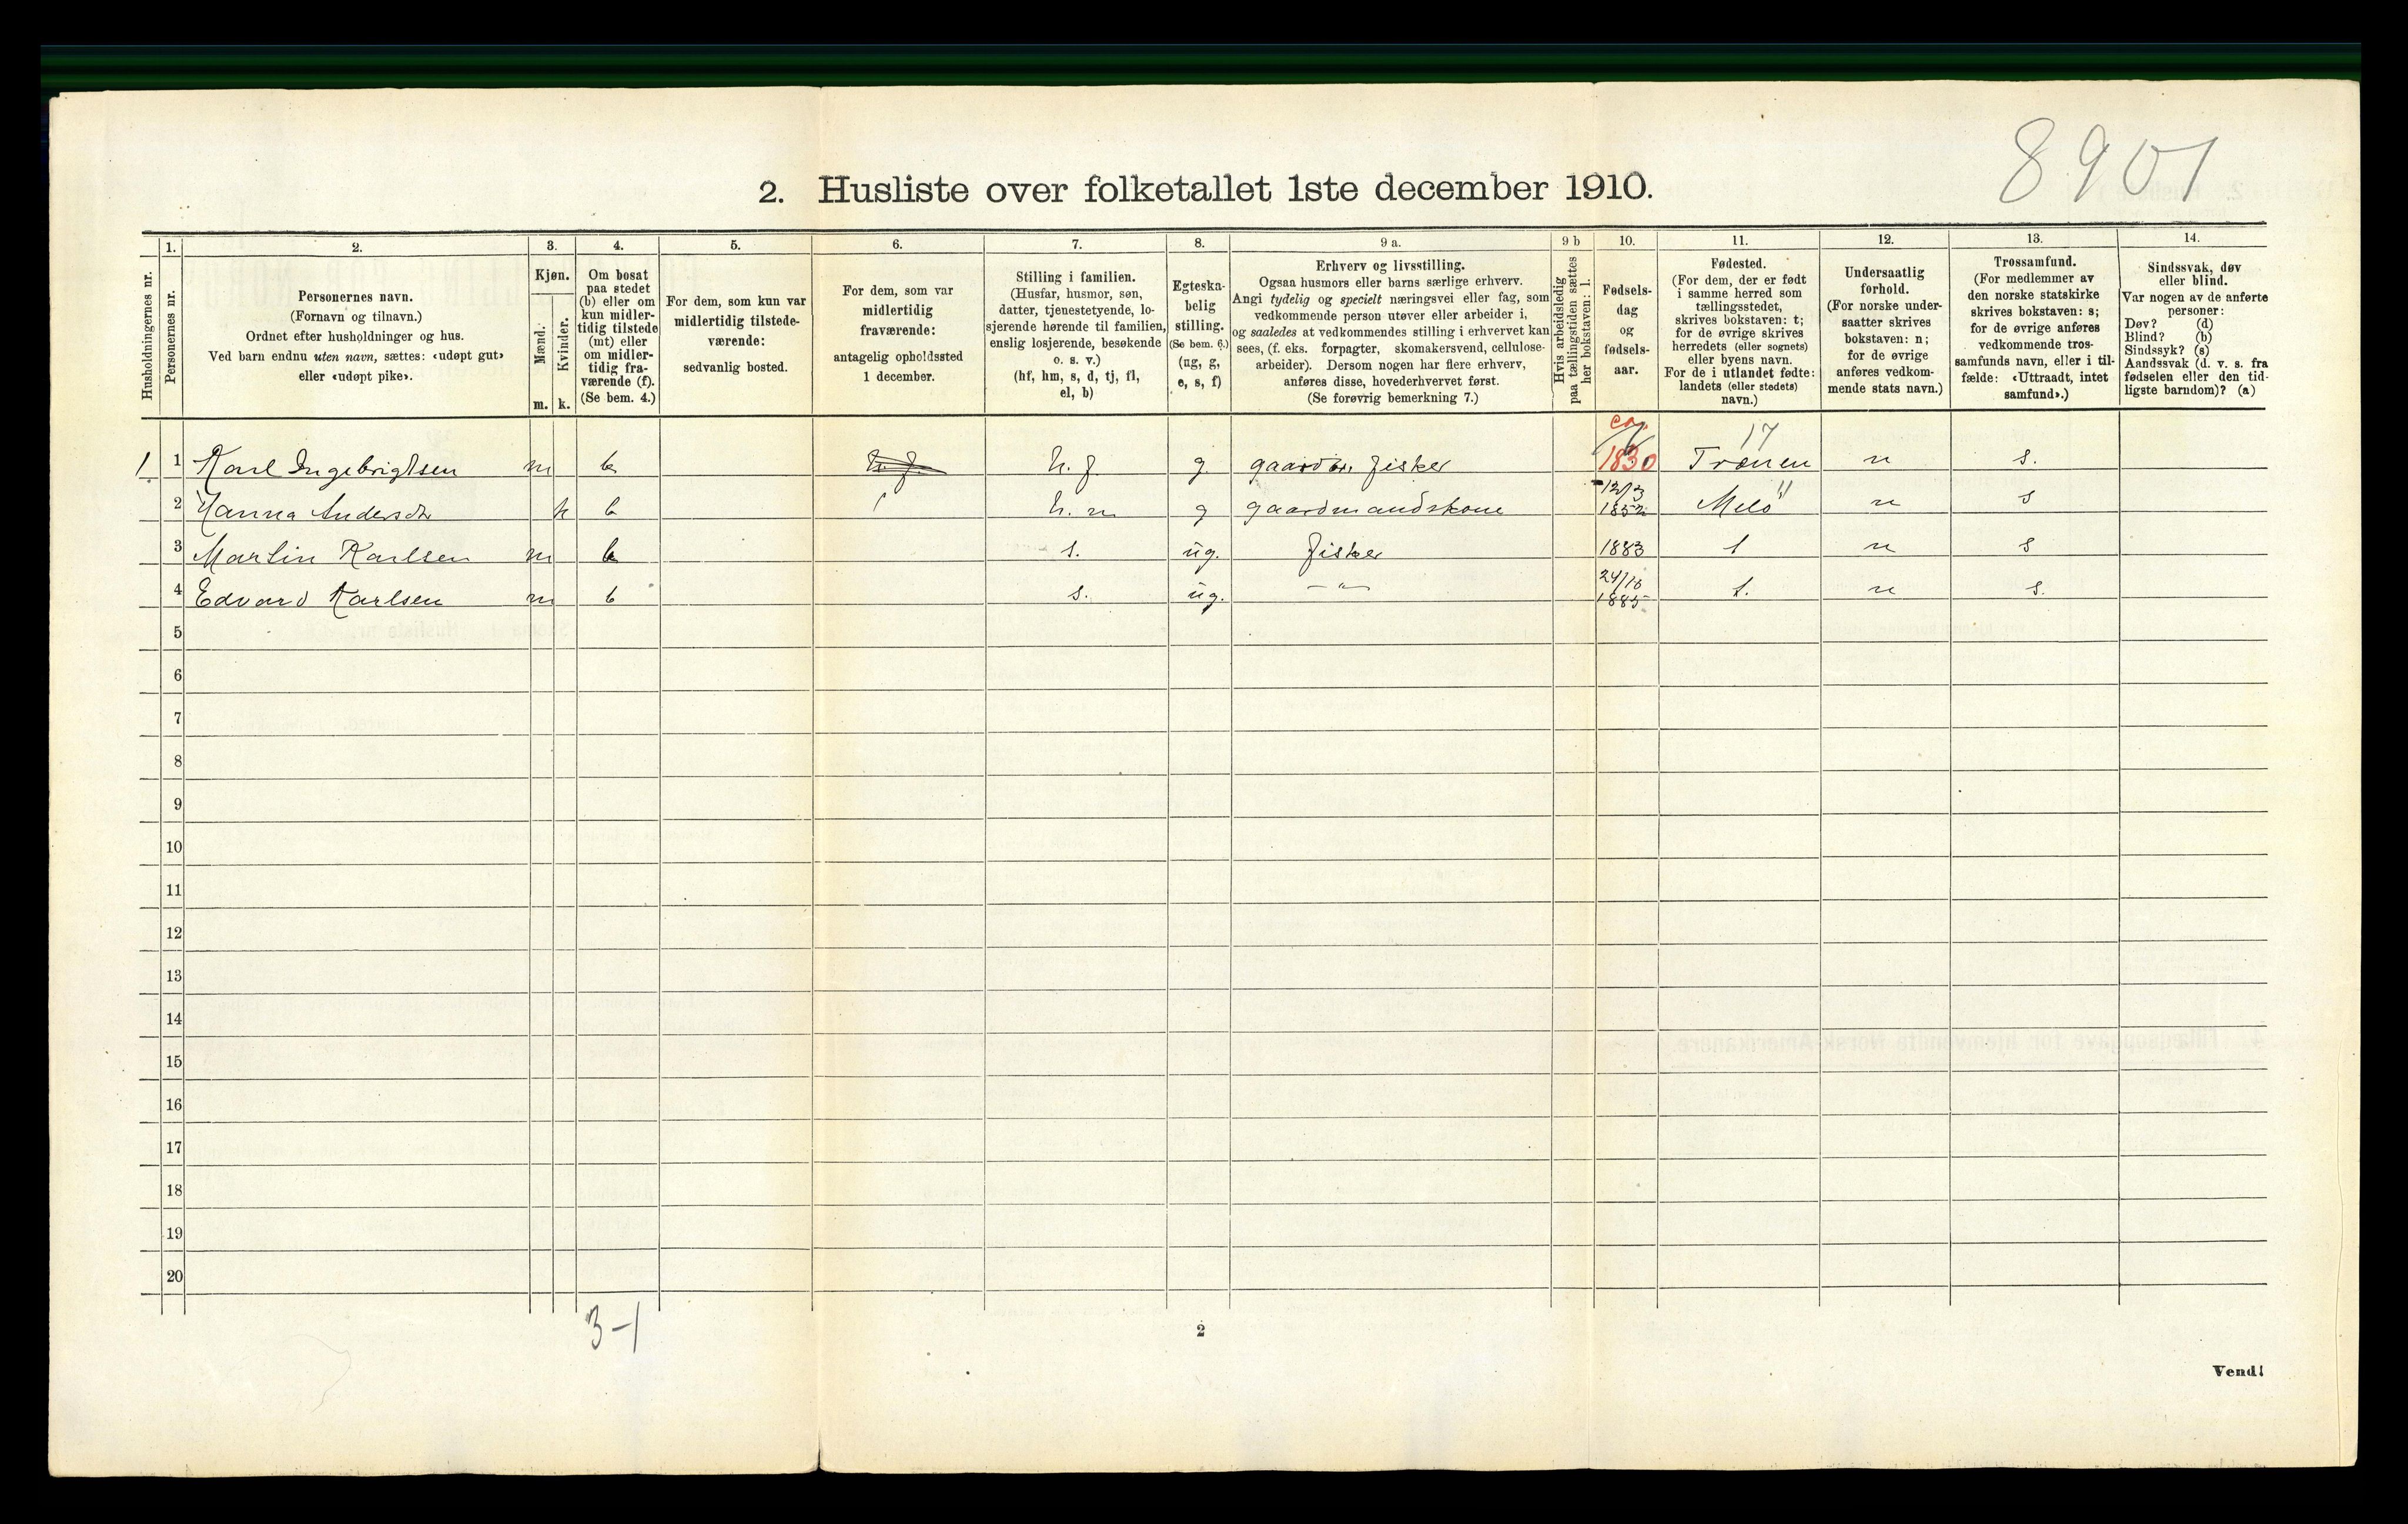 8901
2. Husliste over folketallet 1ste december 1910.
Husholdningernes nr.
1.
Personernes nr.
2.
Personernes navn.
(Fornavn og tilnavn.)
Ordnet efter husholdninger og hus.
Ved barn endnu uten navn, sættes: «udøpt gut»
eller «udøpt pike».
3.
Kjøn.
Mænd.
Kvinder.
m. k.
4.
Om bosat
paa stedet
(b) eller om
kun midler-
tidig tilstede
(mt) eller
om midler-
tidig fra-
værende (f).
(Se bem. 4.)
5.
For dem, som kun var
midlertidig tilstede-
værende:
sedvanlig bosted.
6.
For dem, som var
midlertidig
fraværende:
antagelig opholdssted
1 december.
7.
Stilling i familien.
(Husfar, husmor, søn,
datter, tjenestetyende, lo-
sjerende hørende til familien,
enslig losjerende, besøkende
o. s. v.)
(hf, hm, s, d, tj, fl,
el, b)
8.
Egteska-
belig
stilling.
(Se bem. 6.)
(ug, g,
e, s, f)
9 a.
Erhverv og livsstilling.
Ogsaa husmors eller barns særlige erhverv.
Angi tydelig og specielt næringsvei eller fag, som
vedkommende person utøver eller arbeider i,
og saaledes at vedkommendes stilling i erhvervet kan
sees, (f. eks. forpagter, skomakersvend, cellulose-
arbeider). Dersom nogen har flere erhverv,
anføres disse, hovederhvervet først.
(Se forøvrig bemerkning 7.)
9 b
Hvis arbeidsledig
paa tællingstiden sættes
her bokstaven: l.
10.
Fødsels-
dag
og
fødsels-
aar.
11.
Fødested.
(For dem, der er født
i samme herred som
tællingsstedet,
skrives bokstaven: t;
for de øvrige skrives
herredets (eller sognets)
eller byens navn.
For de i utlandet fødte:
landets (eller stedets)
navn.)
12.
Undersaatlig
forhold.
(For norske under-
saatter skrives
bokstaven: n;
for de øvrige
anføres vedkom-
mende stats navn.)
13.
Trossamfund.
(For medlemmer av
den norske statskirke
skrives bokstaven: s;
for de øvrige anføres
vedkommende tros-
samfunds navn, eller i til-
fælde: «Uttraadt, intet
samfund».)
14.
Sindssvak, døv
eller blind.
Var nogen av de anførte
personer:
Døv? (d)
Blind? (b)
Sindssyk? (s)
Aandssvak (d. v. s. fra
fødselen eller den tid-
ligste barndom)? (a)
ca. 17
1 1 Karl Ingebrigtsen m b h. f. h. f. g. gaardbr. fisker 1830 Trænen n s.
2 Hanna Andersdtr k b h. m g gaardmandskone 12/3 1852 Melö 11 n s
3 Martin Karlsen m b s. ug. fisker 1883 t n s
4 Edvard Karlsen m b s. ug. –"– 24/10 1885 t. n s.
5
6
7
8
9
10
11
12
13
14
15
16
17
18
19
20
3-1
2
Vend!